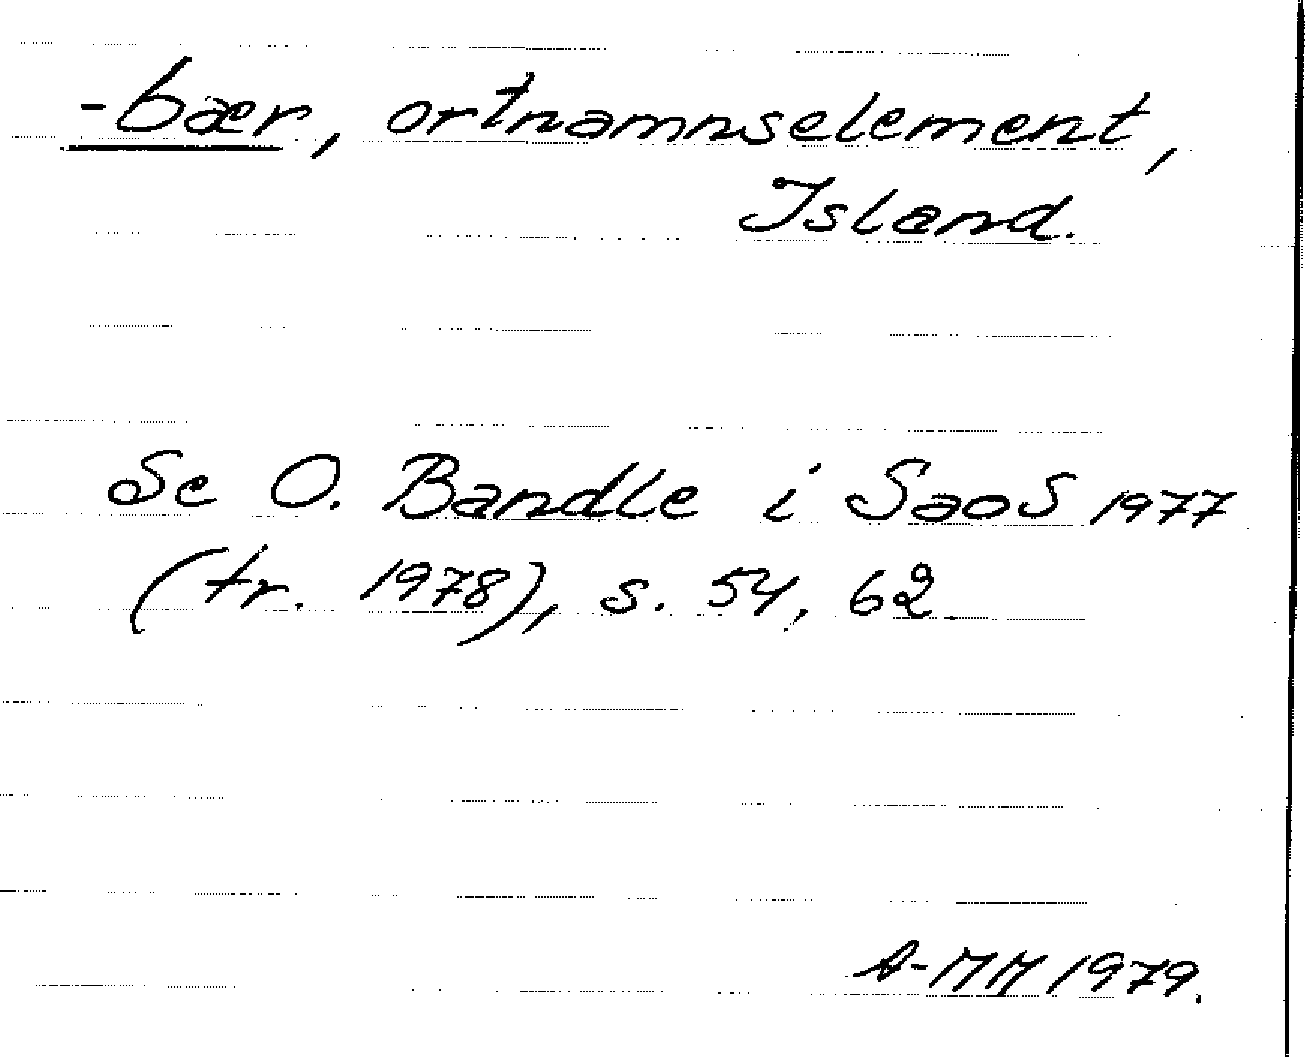 -bær, ortnamnselement,
Island.
Se O. Bandle i SaoS 1977
(tr. 1978), s. 54, 62.
A-MM 1979.